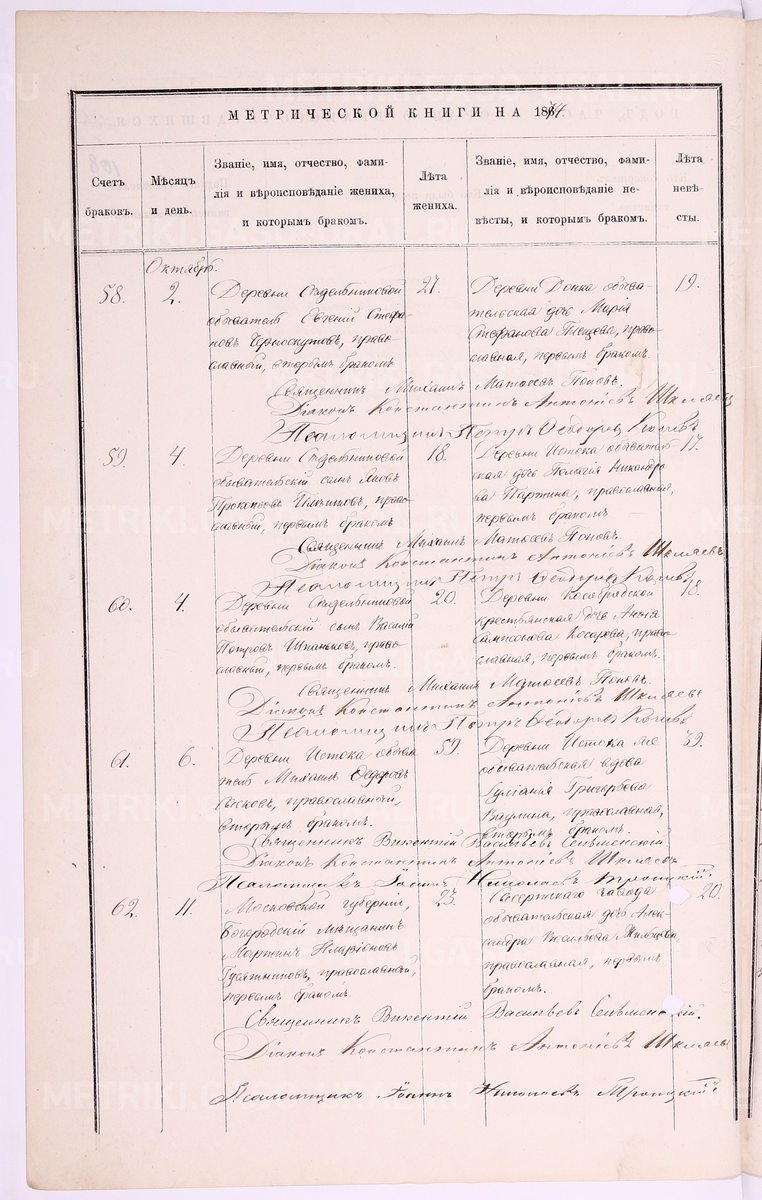 МЕТРИЧЕСКОЙ КНИГИ НА 18
Счетъ браковъ.
Мѣсяцъ и день.
Званіе, имя, отчество, фами-
лія и вѣроисповѣданіе жениха,
и которымъ бракомъ.
Лѣта жениха.
Званіе, имя, отчество, фами-
лія и вѣроисповѣданіе не-
вѣсты, и которымъ бракомъ.
Лѣта невѣ-
сты.
Октябрь.
58.
2.
Деревни
обыватель Евгеній Стефа-
новъ Черноскутовъ, право
славный, вторымъ бракомъ
27.
Деревни обыва-
тельская дочь Марія
Стефанова право-
славная, первымъ бракомъ.
19.
Священникъ Михаилъ Матѳеевъ Поповъ.
Діаконъ Константинъ Антоніевъ Шкляевъ
Псаломщикъ Петръ Ѳеодоровъ
59.
4.
Деревни
обывательскій сынъ Яковъ
Прокопьевъ право
славный, первымъ бракомъ
18.
Деревни Истока обыватель
ская дочь Пелагія Никандро
ва православная,
первымъ бракомъ
17.
Священникъ Михаилъ Матѳеевъ Поповъ.
Діаконъ Константинъ Антоніевъ Шкляевъ
Псаломщикъ Петръ Ѳеодоровъ
60.
4.
Деревни
обывательскій сынъ Василій
Петровъ право
славный, первымъ бракомъ.
20.
Деревни
крестьянская дочь Анна
Самсонова Косарева, право
славная, первымъ бракомъ.
18.
Священникъ Михаилъ Матѳеевъ Поповъ.
Діаконъ Константинъ Антоніевъ Шкляевъ
Псаломщикъ Петръ Ѳеодоровъ
61.
6.
Деревни Истока обыва
тель Михаилъ Ѳедоровъ
православный,
вторымъ бракомъ.
59.
Деревни Истока
обывательская вдова
Григорьева
православная,
вторымъ бракомъ.
59.
Священникъ Викентій Васильевъ Сельменскій.
Діаконъ Константинъ Антоніевъ Шкляевъ
Псаломщикъ Іоаннъ Николаевъ Троицкій.
62.
11.
Московской губерніи,
Богородскій мѣщанинъ
Мартинъ Иларіоновъ
Гусятниковъ, православный,
первымъ бракомъ.
23.
Сысертскаго завода
обывательская дочь Алек-
сандра Васильева
православная, первымъ
бракомъ.
20.
Священникъ Викентій Васильевъ Сельменскій.
Діаконъ Константинъ Антоніевъ Шкляевъ
Псаломщикъ Іоаннъ Николаевъ Троицкій.